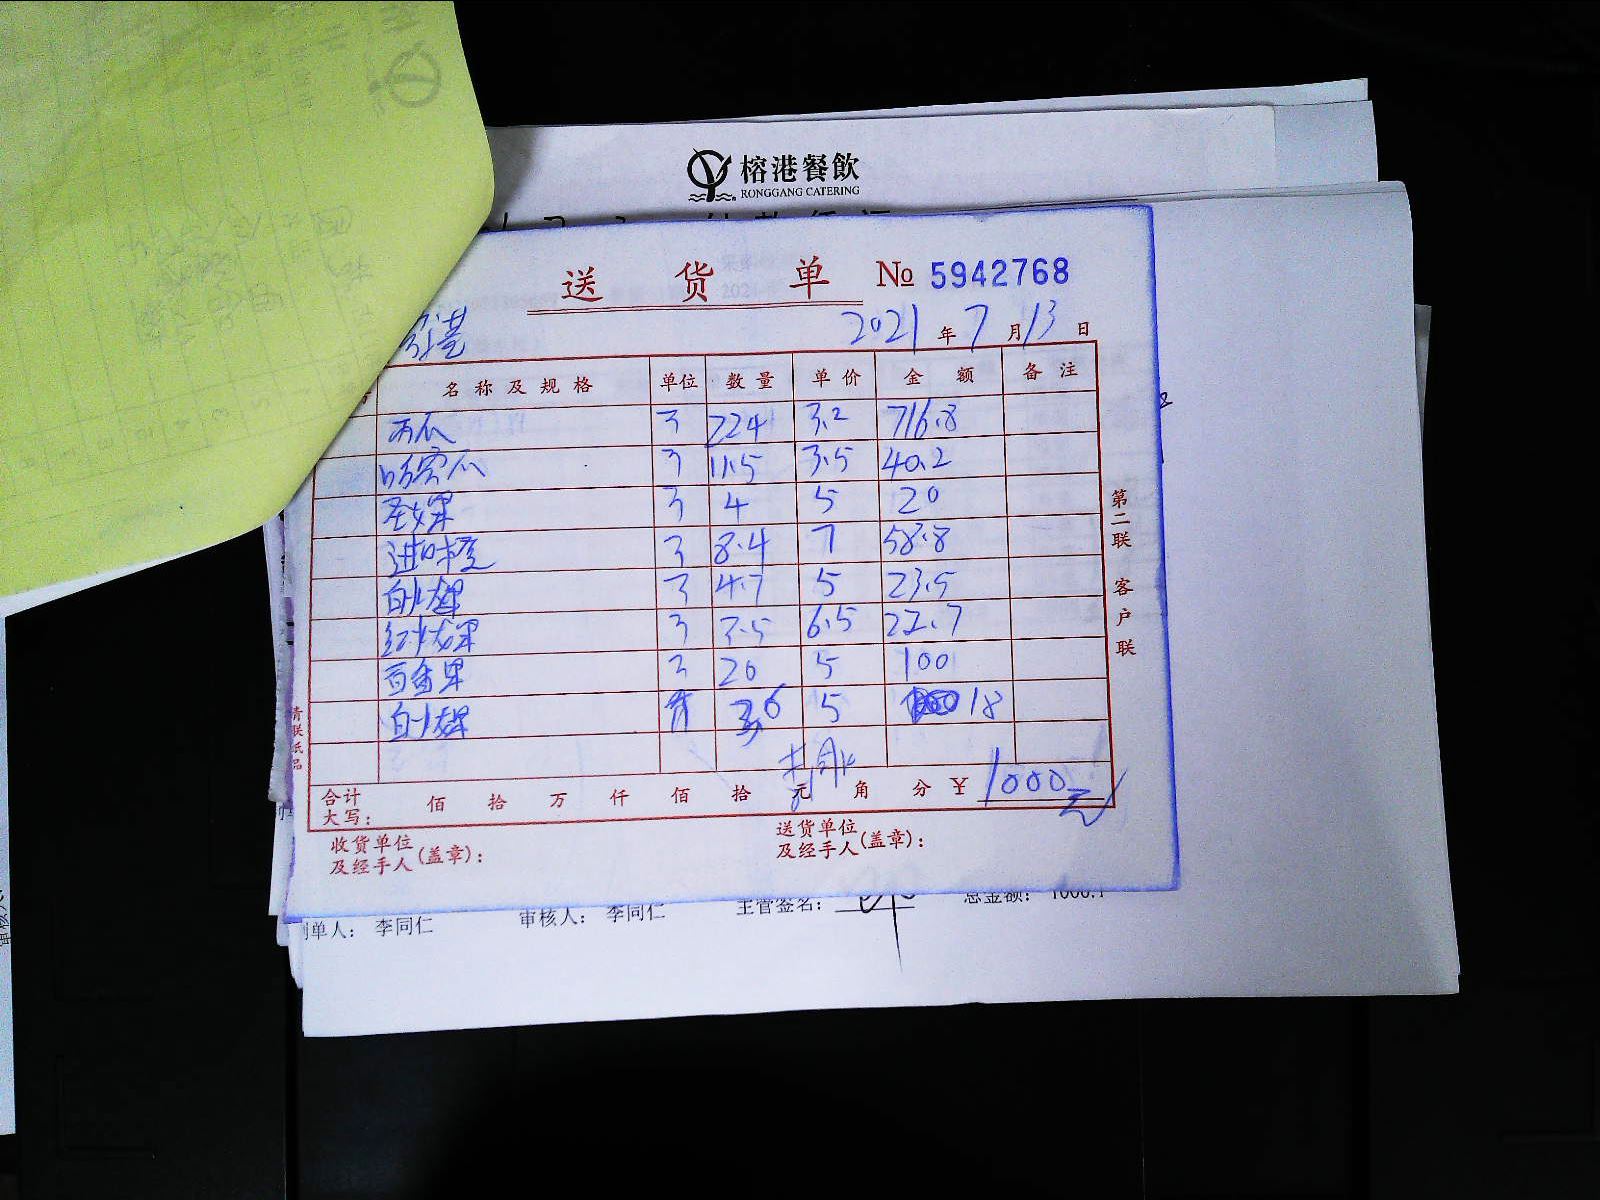 榕港餐飲
RONGGANG CATERING
送货单 № 5942768
2021年7月13日
名称及规格 单位 数量 单价 金额 备注
西瓜 斤 224 3.2 716.8
哈密瓜 斤 11.5 3.5 40.2
圣女果 斤 4 5 20
进口味橙 斤 8.4 7 58.8
白火龙果 斤 4.7 5 23.5
红火龙果 斤 3.5 6.5 22.7
百香果 斤 20 5 100
白火龙果 斤 3.6 5 18
合计大写: 佰 拾 万 仟 佰 拾 元 角 分 ¥ 1000元
收货单位及经手人(盖章):
送货单位及经手人(盖章):
第二联 客户联
青联纸品
制单人: 李同仁 审核人: 李同仁 主管签名: 总金额: